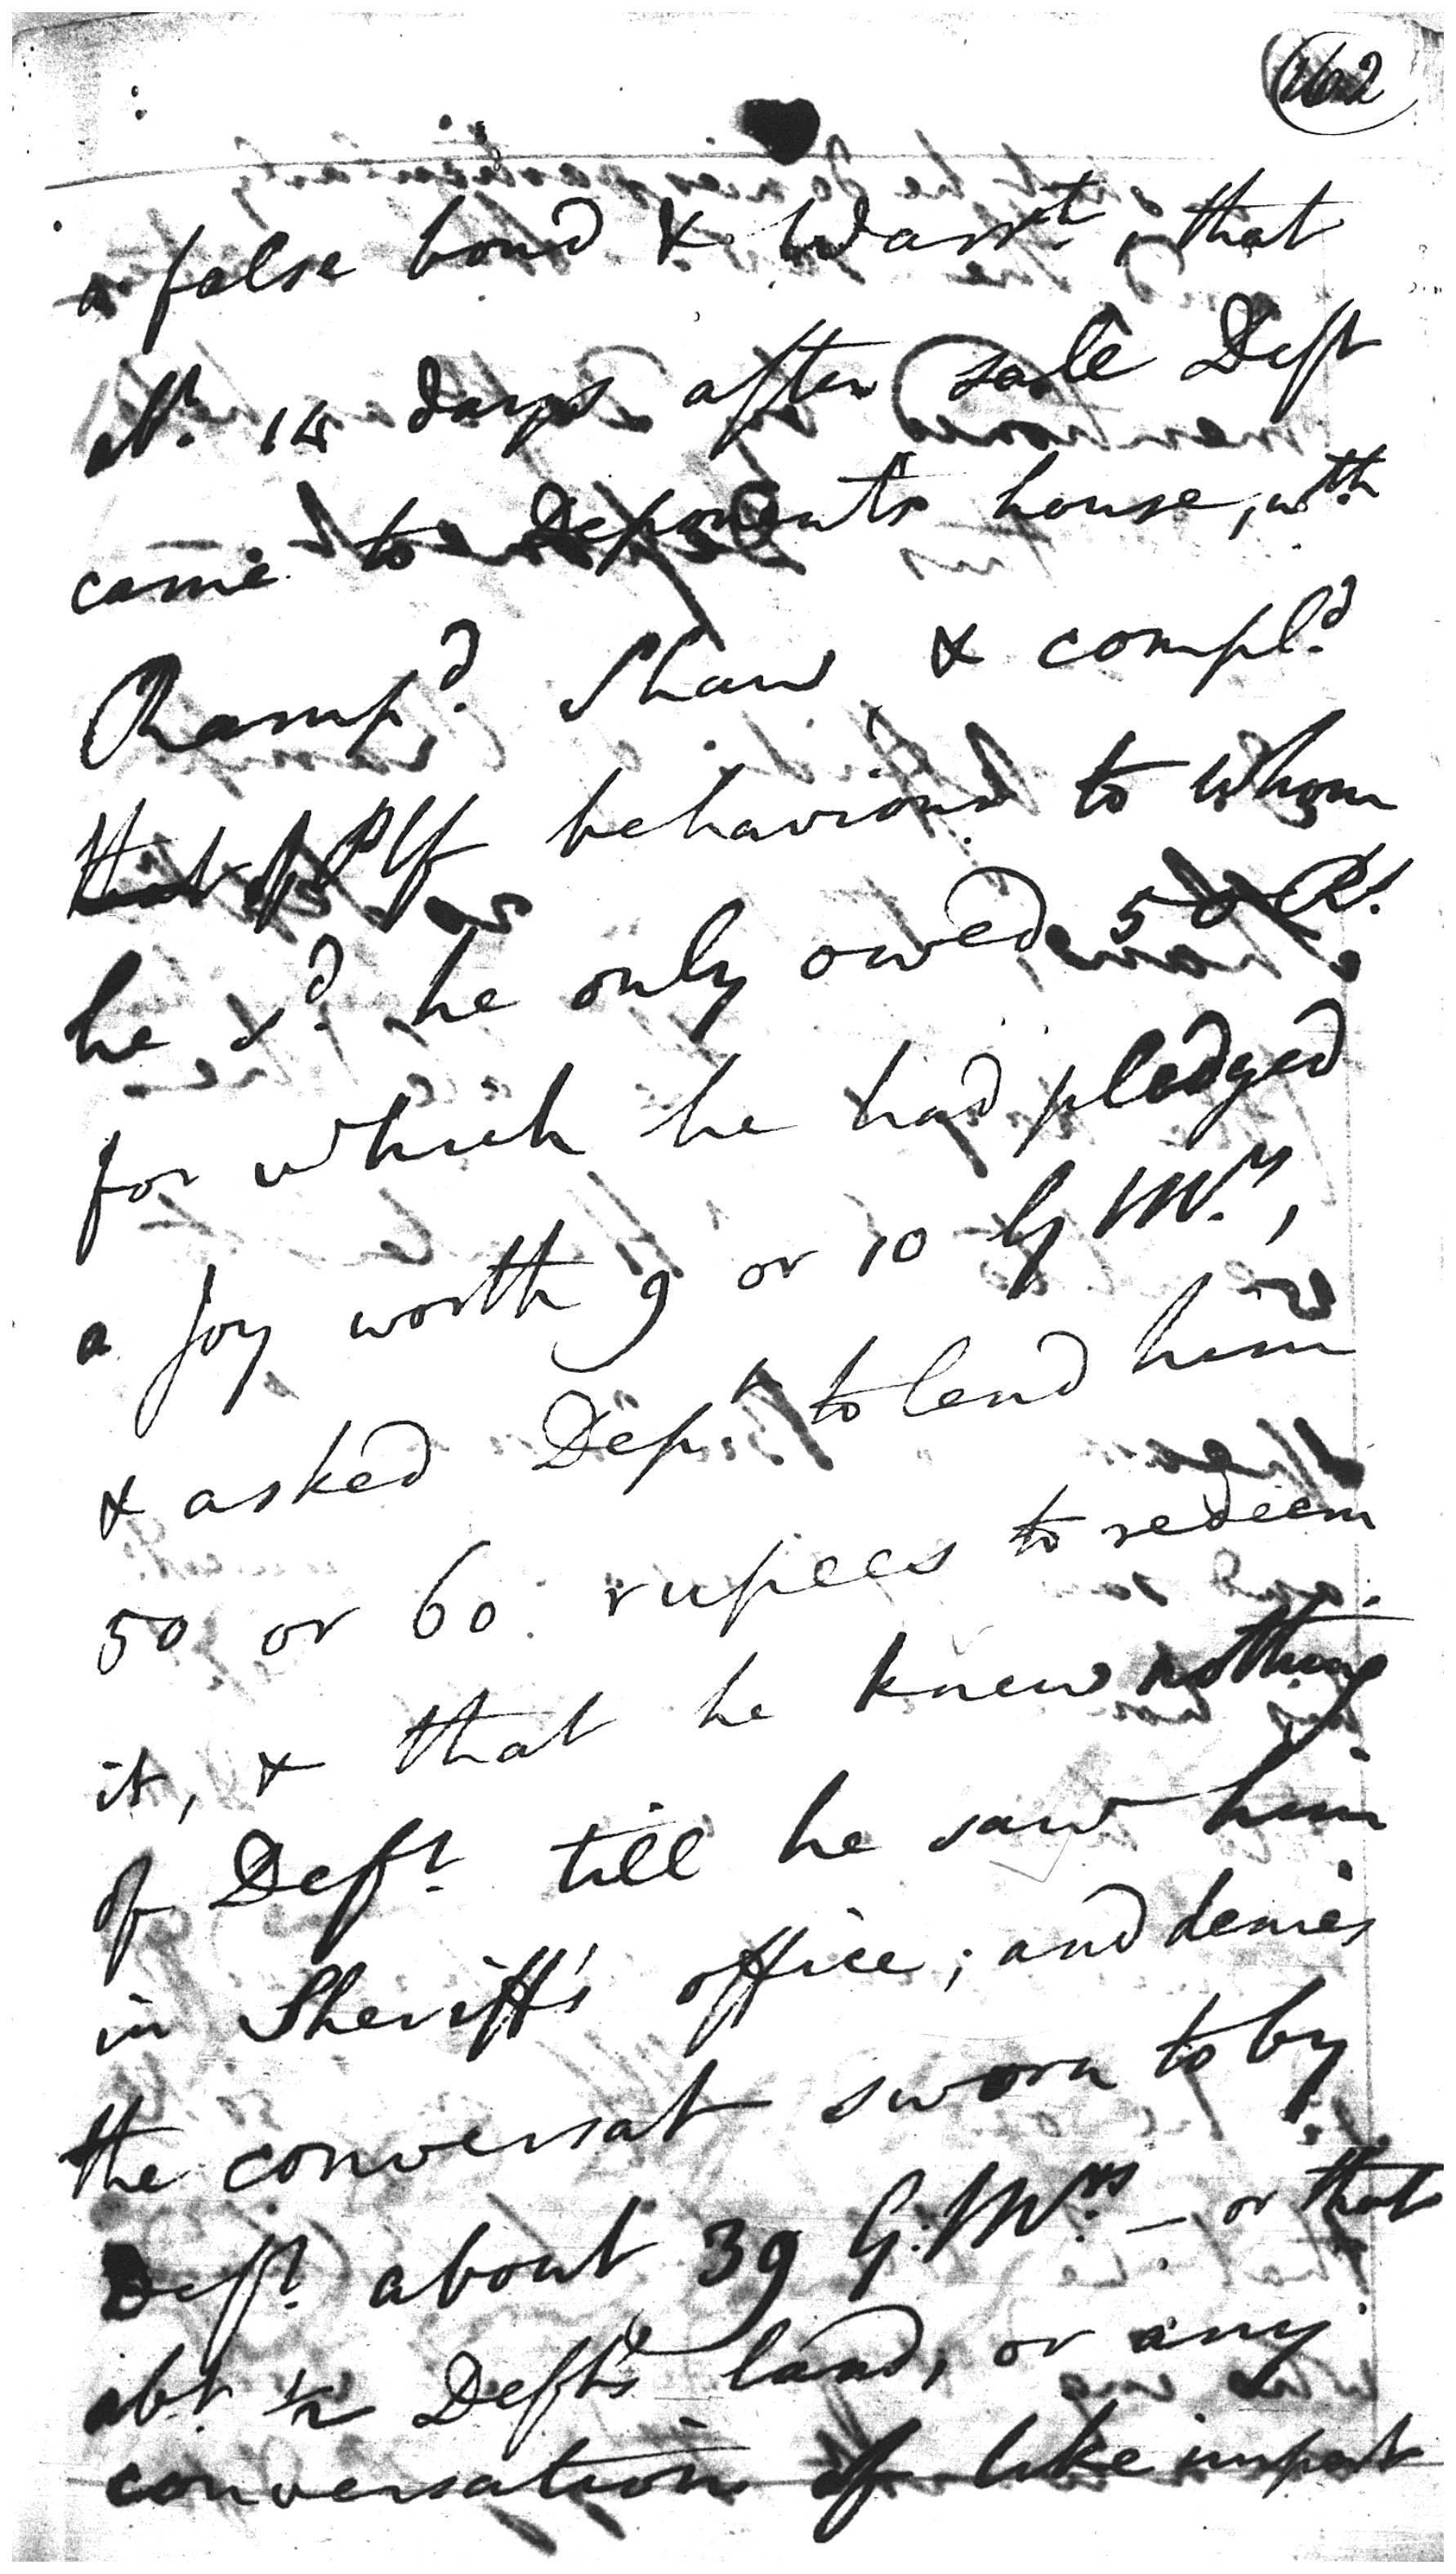 162
a false bond & Warrt, that
abt. 15 days after sale Deft
came to Deponents house, wth
Rampd. Shaw & compld.
that of Plf behaviour to whom
he sd. he only owed 50 Rs.
for which he had pledged
a Joy worth 9 or 10 G Mrs,
& asked Dept. to lend him
50 or 60 rupees to redeem
it, & that he knew nothing
of Deft. till he saw him
in Sheriff's office; and denies
the conversat sworn to by
Deft. about 39 G. Mrs. — or that
abt ½ Defts land, or any
conversation of like import